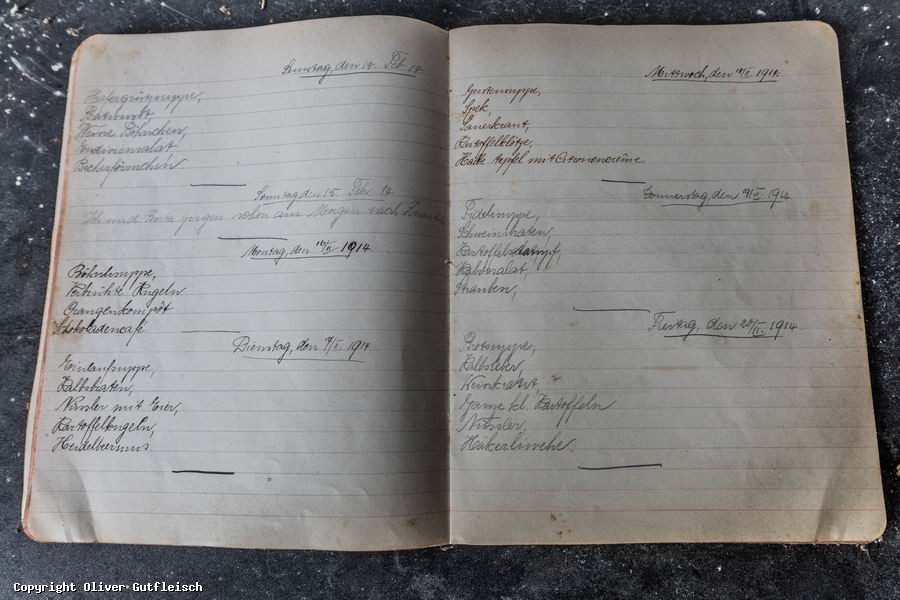 Samstag, den 14. Feb. 14.
Hafergrützsuppe,
Bratwurst
Weisse Böhnchen,
Endiviensalat
Becherförmchen
Sonntag den 15. Feb. 14
Ich und Berta gingen schon am Morgen nach
Montag, den 16/II 1914.
Böhnlisuppe,
Kugeln
Orangenkompôt
Schokoladencafé
Dienstag, den 17/II. 1914.
Einlaufsuppe,
Kalbsbraten,
Nüssler mit Eier,
Kartoffelkugeln,
Heidelbeermus
Mittwoch, den 18/II 1914.
Gerstensuppe,
Spek,
Sauerkraut,
Kartoffelklötze,
Halbe Aepfel mit Citronencrème
Donnerstag, den 19/II. 1914.
Fidelisuppe,
Schweinsbraten,
Kartoffelndampf,
Kabissalat,
Strauben,
Freitag, den 20/II. 1914
Brotsuppe,
Kalbsleber,
Weisskraut,
Ganze kl. Kartoffeln
Nüssler,
Copyright Oliver Gutfleisch